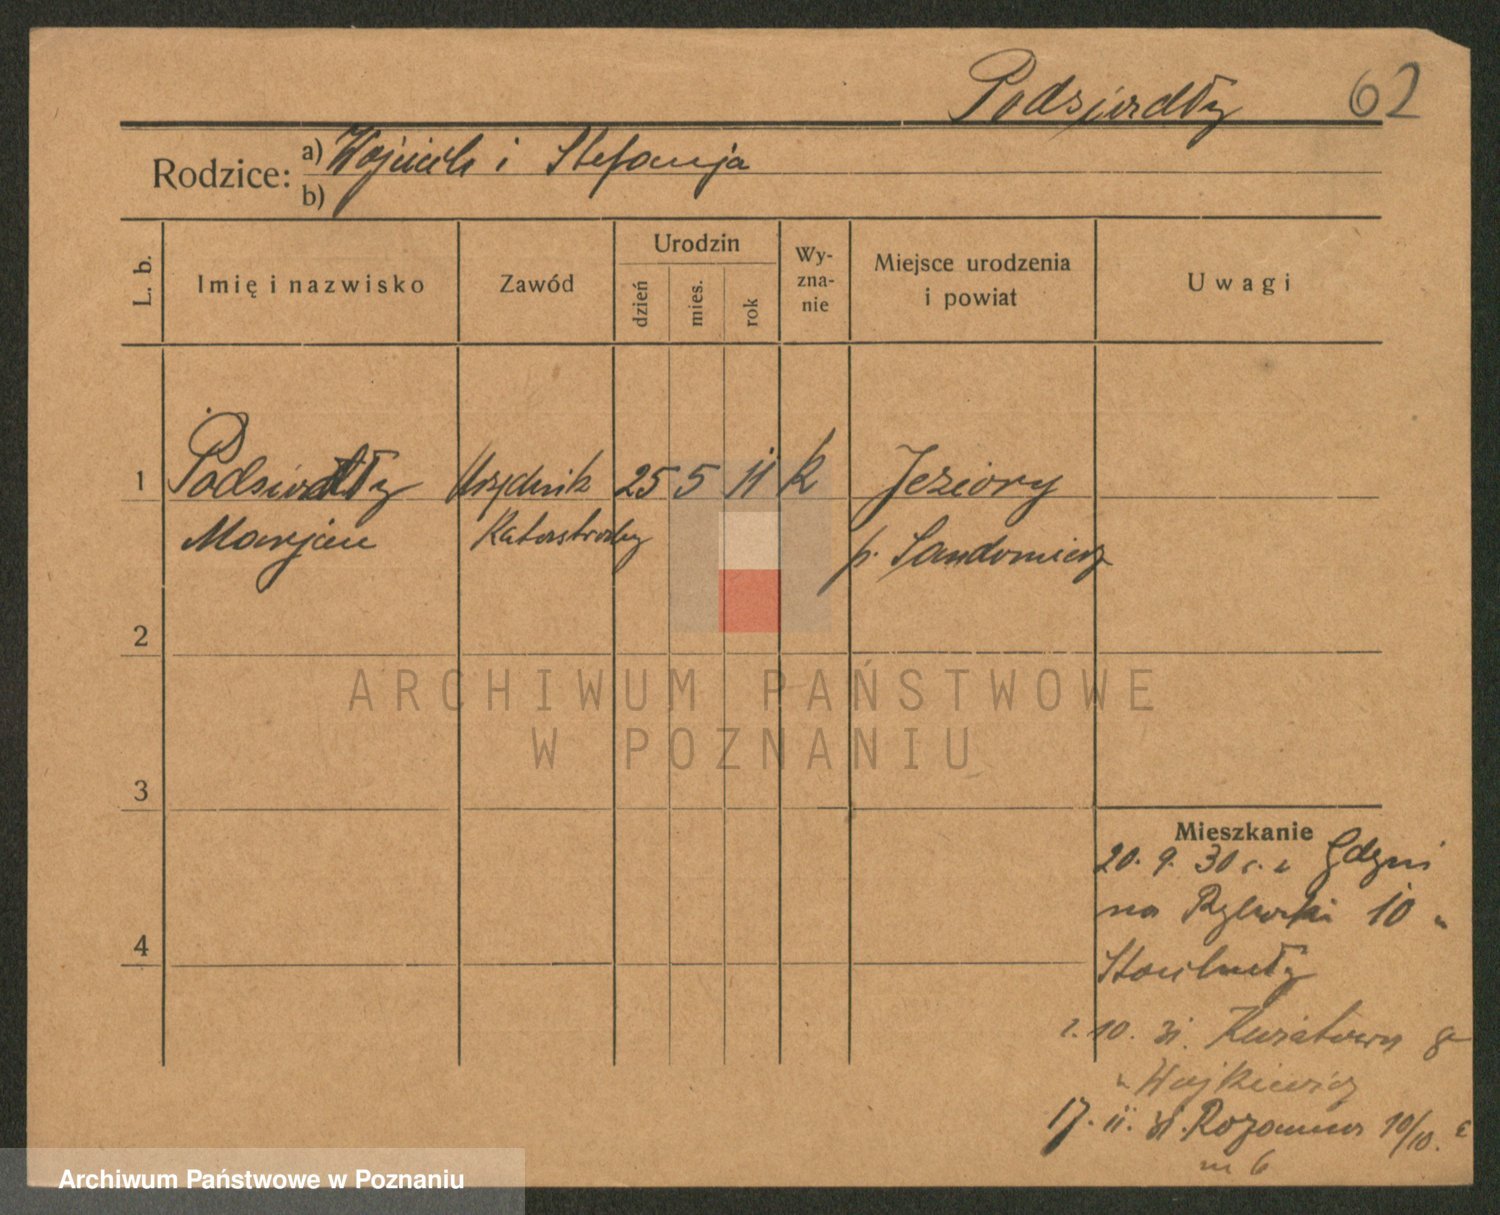 Podsiadły 62
Rodzice: a) Wojciech i Stefanja
b)
L. b.
Imię i nazwisko
Zawód
Urodzin
dzień
mies.
rok
Wy-
zna-
nie
Miejsce urodzenia
i powiat
Uwagi
1 Podsiadły Urzędnik 25 5 11 k Jeziory
Marjan Katastralny p. Sandomierz
2
ARCHIWUM PAŃSTWOWE
W POZNANIU
3
Mieszkanie
20. 9. 30 r. z Gdyni
na Rybaki 10 u
4
2. 10. 31. Kwiatowa 8
u Wojkiewicz
17. 11. 31. Różana 10/10.
m 6
Archiwum Państwowe w Poznaniu